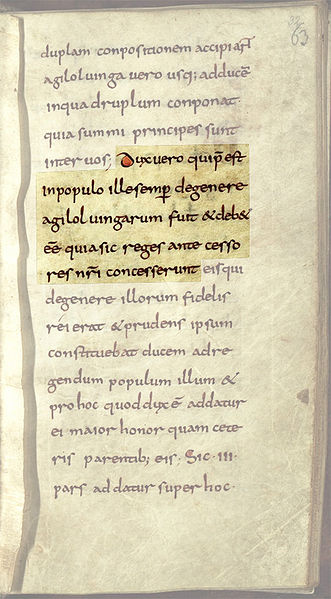 63
duplam conpositionem accipiant
agilolvinga vero usq; ad ducē
in quadruplum conponat·
quia summi principes sunt
inter vos; Dux vero qui p̄est
in populo ille semp̱ de genere
agilolvingarum fuit & deb&
eē quia sic reges ante cesso
res nr̄i concesserunt eis qui
de genere illorum fidelis
rei erat & prudens ipsum
constituebat ducem ad re
gendum populum illum &
pro hoc quod dux ē addatur
ei maior honor quam cete
ris parentib; eis· Sic ·III·
pars addatur super hoc·